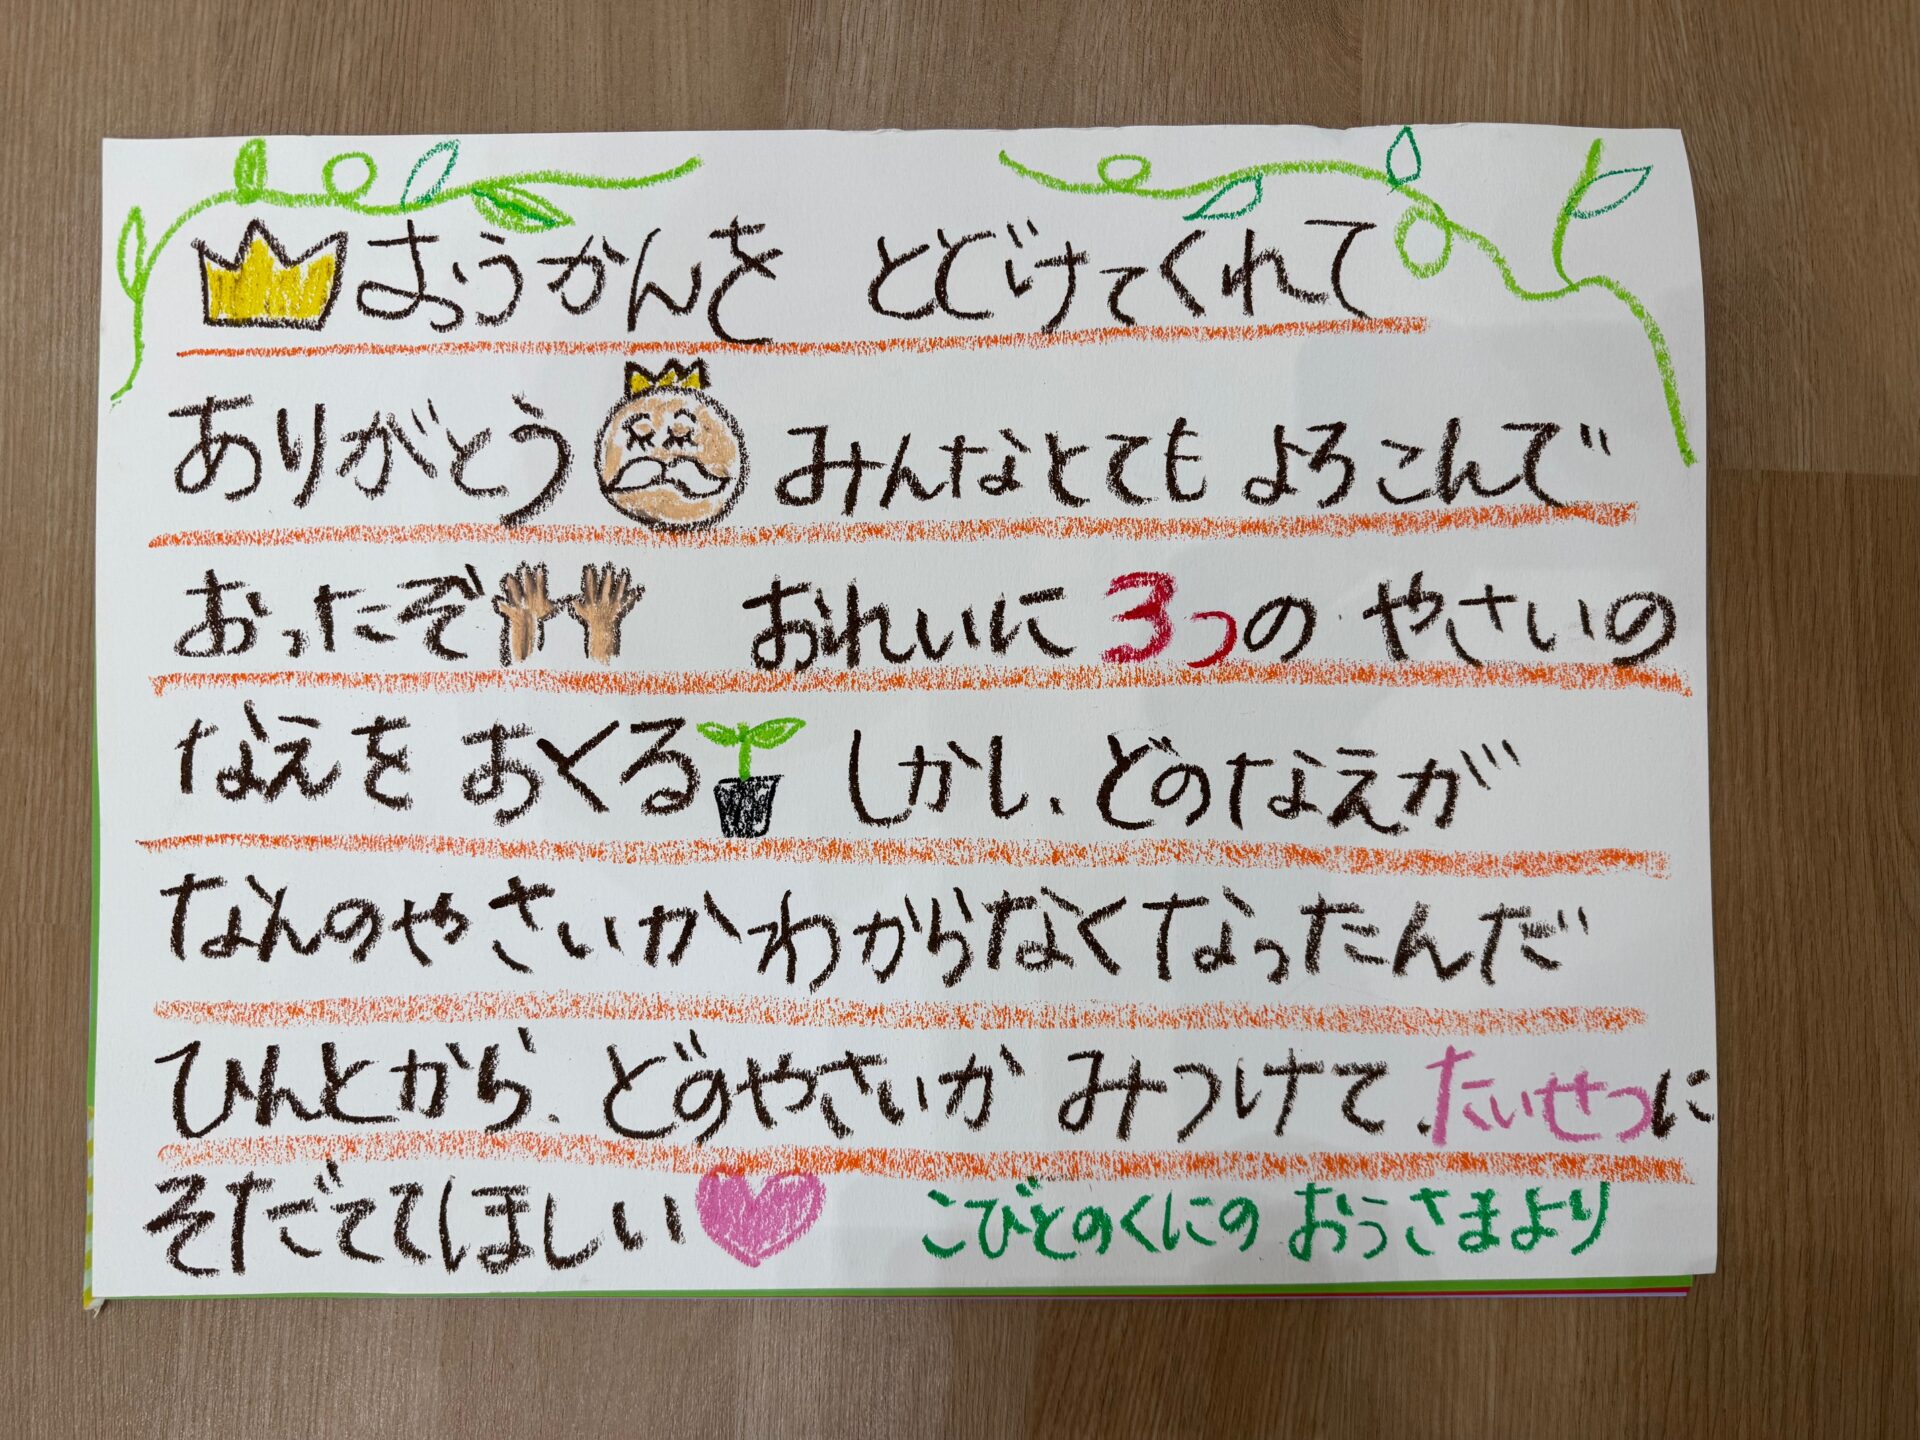 おうかんを とどけてくれて
ありがとう みんなとても よろこんで
おったぞ おれいに 3つの やさいの
なえを おくる しかし、どのなえが
なんのやさいか わからなくなったんだ
ひんとから、どのやさいか みつけて、たいせつに
そだててほしい こびとのくにの おうさまより